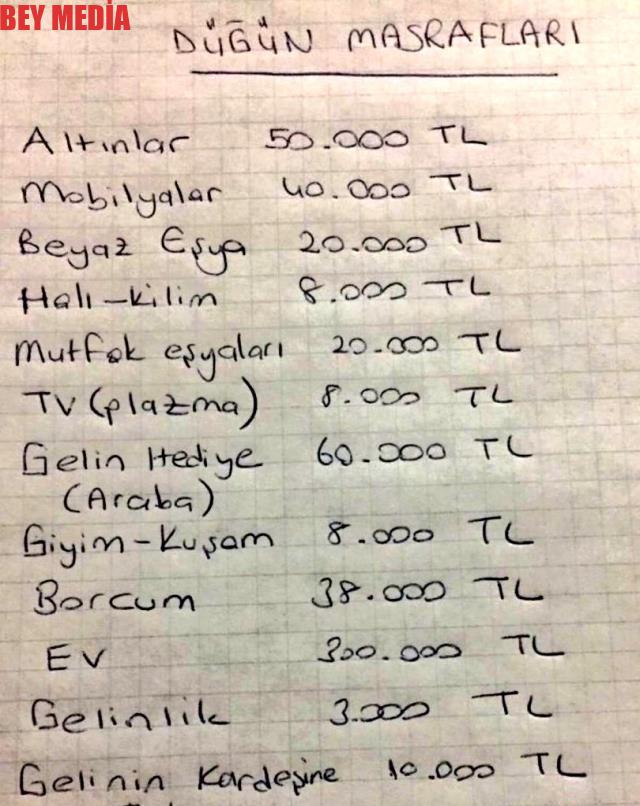 BEY MEDİA
DÜĞÜN MASRAFLARI
Altınlar 50.000 TL
Mobilyalar 40.000 TL
Beyaz Eşya 20.000 TL
Halı-kilim 8.000 TL
Mutfak eşyaları 20.000 TL
TV (plazma) 8.000 TL
Gelin Hediye 60.000 TL
(Araba)
Giyim-Kuşam 8.000 TL
Borcum 38.000 TL
EV 300.000 TL
Gelinlik 3.000 TL
Gelinin Kardeşine 10.000 TL